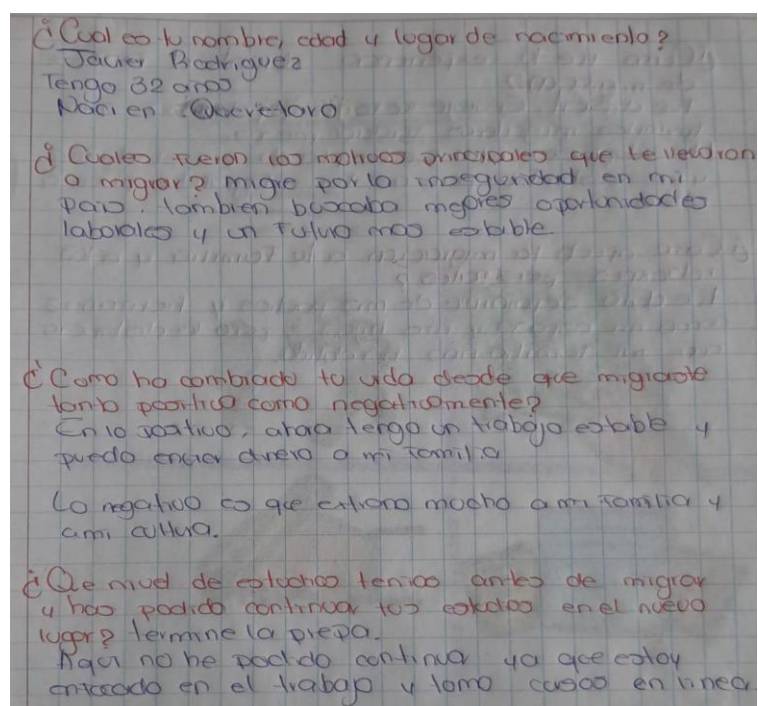 ¿Cual es tu nombre, edad y lugar de nacimiento?
Javier Rodriguez
Tengo 32 años
Naci en Queretaro
¿Cuales fueron los motivos principales que te llevaron
a migrar? migre por la inseguridad en mi
pais. Tambien buscaba mejores oportunidades
laborales y un futuro mas estable
¿Como ha cambiado tu vida desde que migraste
tanto positiva como negativamente?
En lo positivo, ahora tengo un trabajo estable y
puedo enviar dinero a mi familia
Lo negativo es que extraño mucho a mi familia y
a mi cultura.
¿Que nivel de estudios tenias antes de migrar
y has podido continuar tus estudios en el nuevo
lugar? termine la prepa.
Aqui no he podido continua ya que estoy
enfocado en el trabajo y tomo cursos en linea